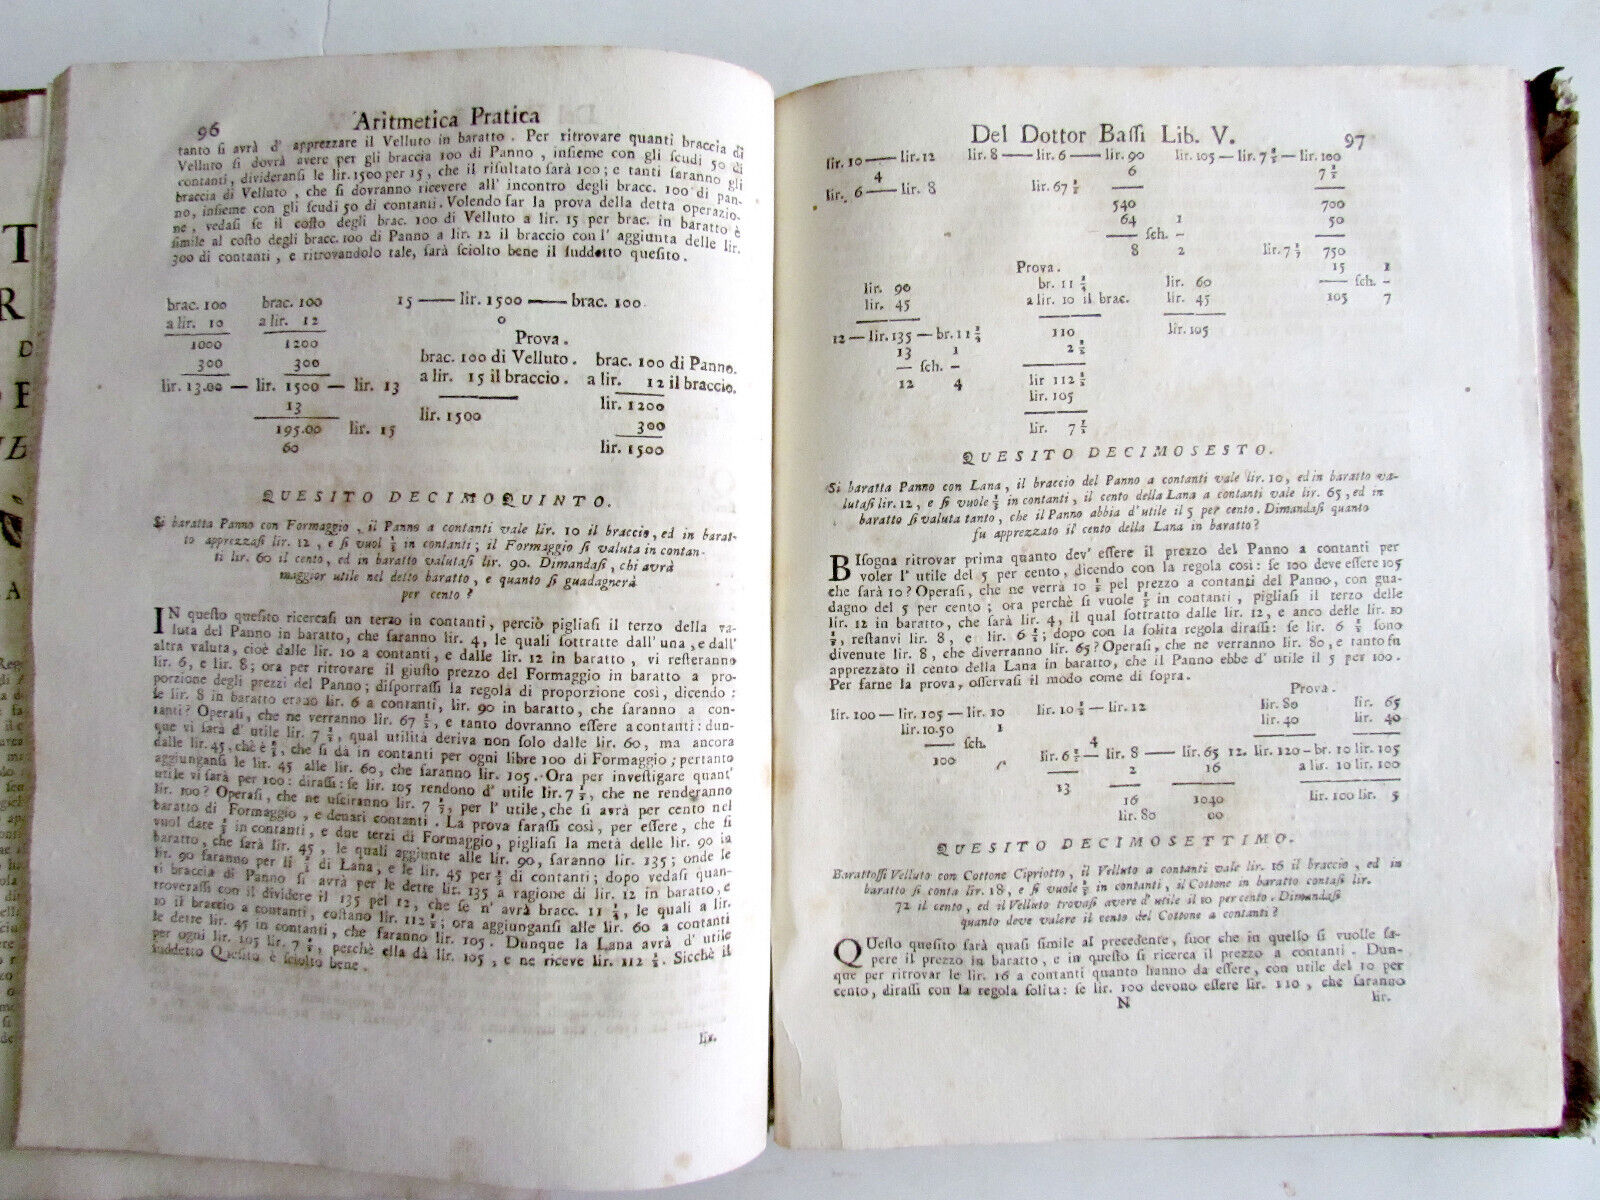 96 Aritmetica Pratica
tanto si avrà d' apprezzare il Velluto in baratto. Per ritrovare quanti braccia di
Velluto si dovrà avere per gli braccia 100 di Panno, insieme con gli scudi 50 di
contanti, divideransi le lir. 1500 per 15, che il risultato sarà 100; e tanti saranno gli
braccia di Velluto, che si dovranno ricevere all' incontro degli bracc. 100 di pan-
no, insieme con gli scudi 50 di contanti. Volendo far la prova della detta operazio-
ne, vedasi se il costo degli brac. 100 di Velluto a lir. 15 per brac. in baratto è
simile al costo degli bracc. 100 di Panno a lir. 12 il braccio con l' aggiunta delle lir.
300 di contanti, e ritrovandolo tale, sarà sciolto bene il suddetto quesito.
brac. 100 brac. 100 15 — lir. 1500 — brac. 100.
a lir. 10 a lir. 12 0
1000 1200 Prova.
300 300 brac. 100 di Velluto. brac. 100 di Panno.
lir. 13.00 — lir. 1500 — lir. 13 a lir. 15 il braccio. a lir. 12 il braccio.
13 lir. 1500 lir. 1200
195.00 lir. 15 300
60 lir. 1500
QUESITO DECIMOQUINTO.
Si baratta Panno con Formaggio, il Panno a contanti vale lir. 10 il braccio, ed in barat-
to apprezzasi lir. 12, e si vuol 1/3 in contanti; il Formaggio si valuta in contan-
ti lir. 60 il cento, ed in baratto valutasi lir. 90. Dimandasi, chi avrà
maggior utile nel detto baratto, e quanto si guadagnerà
per cento?
IN questo quesito ricercasi un terzo in contanti, perciò pigliasi il terzo della va-
luta del Panno in baratto, che saranno lir. 4, le quali sottratte dall' una, e dall'
altra valuta, cioè dalle lir. 10 a contanti, e dalle lir. 12 in baratto, vi resteranno
lir. 6, e lir. 8; ora per ritrovare il giusto prezzo del Formaggio in baratto a pro-
porzione degli prezzi del Panno; disporrassi la regola di proporzione così, dicendo:
se lir. 8 in baratto erano lir. 6 a contanti, lir. 90 in baratto, che saranno a con-
tanti? Operasi, che ne verranno lir. 67 1/2, e tanto dovranno essere a contanti: dun-
que vi sarà d' utile lir. 7 1/2, qual utilità deriva non solo dalle lir. 60, ma ancora
dalle lir. 45, ch' è 1/3, che si dà in contanti per ogni libre 100 di Formaggio; pertanto
aggiungansi le lir. 45 alle lir. 60, che saranno lir. 105. Ora per investigare quant'
utile vi sarà per 100: dirassi: se lir. 105 rendono d' utile lir. 7 1/2, che ne renderanno
lir. 100? Operasi, che ne usciranno lir. 7 1/7, per l' utile, che si avrà per cento nel
baratto di Formaggio, e denari contanti. La prova farassi così, per essere, che si
vuol dare 1/3 in contanti, e due terzi di Formaggio, pigliasi la metà delle lir. 90 in
baratto, che sarà lir. 45, le quali aggiunte alle lir. 90, saranno lir. 135; onde le
lir. 90 saranno per li 2/3 di Lana, e le lir. 45 per 1/3 di contanti; dopo vedasi quan-
ti braccia di Panno si avrà per le dette lir. 135 a ragione di lir. 12 in baratto, e
troverassi con il dividere il 135 pel 12, che se n' avrà bracc. 11 1/4, le quali a lir.
10 il braccio a contanti, costano lir. 112 1/2; ora aggiungansi alle lir. 60 a contanti
le dette lir. 45 in contanti, che saranno lir. 105. Dunque la Lana avrà d' utile
per ogni lir. 105 lir. 7 1/2, perchè ella dà lir. 105, e ne riceve lir. 112 1/2. Sicchè il
suddetto Quesito è sciolto bene.
lir.
Del Dottor Bassi Lib. V. 97
lir. 10 — lir. 12 lir. 8 — lir. 6 — lir. 90 lir. 105 — lir. 7 1/2 — lir. 100
4 6 7 1/2
lir. 6 — lir. 8 lir. 67 1/2
540 700
64 1 50
sch. –
8 2 lir. 7 1/7 750
Prova. 15 1
lir. 90 br. 11 1/4 lir. 60 sch. –
lir. 45 a lir. 10 il brac. lir. 45 105 7
12 — lir. 135 — br. 11 1/4 110 lir. 105
13 1 2 1/2
— sch. –
12 4 lir 112 1/2
lir. 105
lir. 7 1/2
QUESITO DECIMOSESTO.
Si baratta Panno con Lana, il braccio del Panno a contanti vale lir. 10, ed in baratto va-
lutasi lir. 12, e si vuole 1/3 in contanti, il cento della Lana a contanti vale lir. 65, ed in
baratto si valuta tanto, che il Panno abbia d'utile il 5 per cento. Dimandasi quanto
fu apprezzato il cento della Lana in baratto?
BIsogna ritrovar prima quanto dev' essere il prezzo del Panno a contanti per
voler l' utile del 5 per cento, dicendo con la regola così: se 100 deve essere 105
che sarà 10? Operasi, che ne verrà 10 1/2 pel prezzo a contanti del Panno, con gua-
dagno del 5 per cento; ora perchè si vuole 1/3 in contanti, pigliasi il terzo delle
lir. 12 in baratto, che sarà lir. 4, il qual sottratto dalle lir. 12, e anco delle lir. 10
1/2, restanvi lir. 8, e lir. 6 1/2; dopo con la solita regola dirassi: se lir. 6 1/2 sono
divenute lir. 8, che diverranno lir. 65? Operasi, che ne verranno lir. 80, e tanto fu
apprezzato il cento della Lana in baratto, che il Panno ebbe d' utile il 5 per 100.
Per farne la prova, osservasi il modo come di sopra.
Prova.
lir. 100 — lir. 105 — lir. 10 lir. 10 1/2 — lir. 12 lir. 80 lir. 65
lir. 10.50 1 lir. 40 lir. 40
sch. 4
100 lir. 6 1/2 — lir. 8 — lir. 65 12. lir. 120 – br. 10 lir. 105
2 16 a lir. 10 lir. 100
13
16 1040 lir. 100 lir. 5
lir. 80 00
QUESITO DECIMOSETTIMO.
Barattossi Velluto con Cottone Cipriotto, il Velluto a contanti vale lir. 16 il braccio, ed in
baratto si conta lir. 18, e si vuole 1/3 in contanti, il Cottone in baratto contasi lir.
72 il cento, ed il Velluto trovasi avere d' utile il 10 per cento. Dimandasi
quanto deve valere il cento del Cottone a contanti?
QUesto quesito sarà quasi simile al precedente, fuor che in quello si vuolle sa-
pere il prezzo in baratto, e in questo si ricerca il prezzo a contanti. Dun-
que per ritrovar le lir. 16 a contanti quanto hanno da essere, con utile del 10 per
cento, dirassi con la regola solita: se lir. 100 devono essere lir. 110, che saranno
N lir.